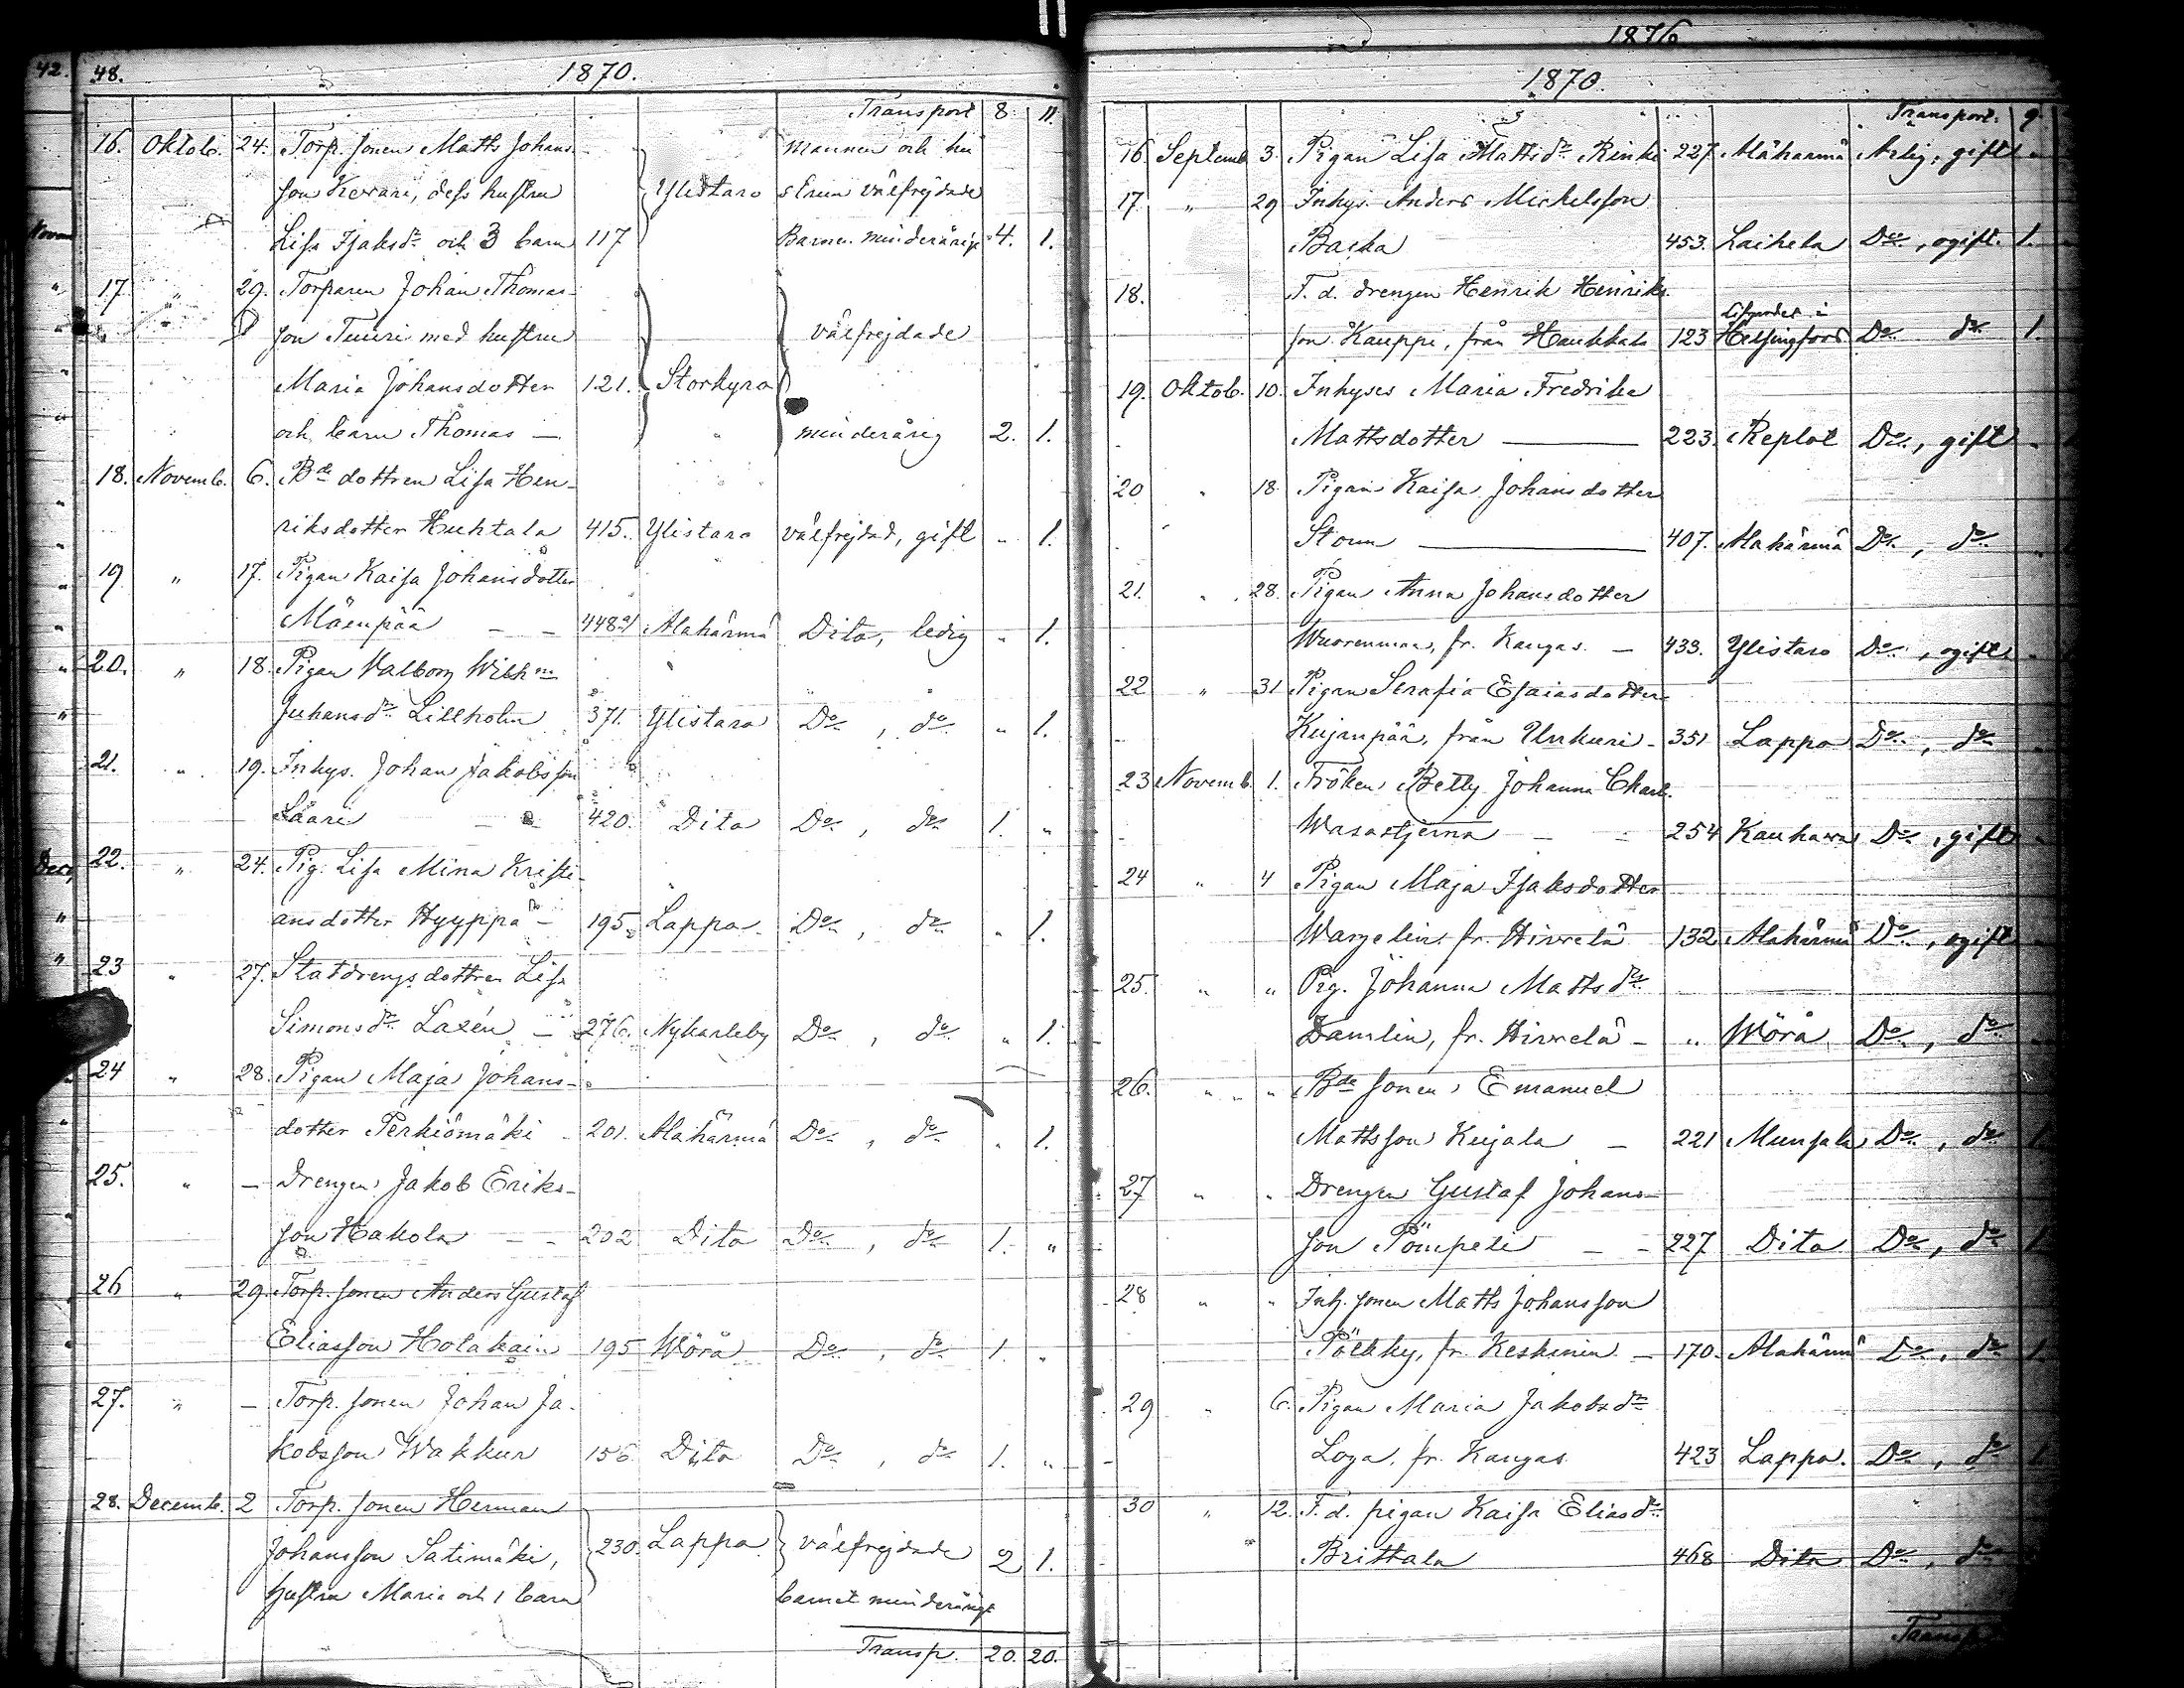 42.
48.
1870.
Transport 8. 11.
16. Oktob. 24. Torp. sonen Matts Johans
son Kevari, dess hustru Ylistaro
mannen och hu
strun välfrejdade
Lisa Isaksdr och 3 barn 117 Barnen minderårige 4. 1.
17 " 29. Torparen Johan Thomas-
son Tuuri med hustru välfrejdade
Maria Johansdotter 121. Storkyro
och barn Thomas — minderårig 2. 1.
18. Novemb. 6. Bde dottren Lisa Hen-
riksdotter Huhtala 415. Ylistaro välfrejdad, gift " 1.
19 " 17. Pigan Kaisa Johansdotter
Mäenpää - - 448 Alahärmä Dito, ledig " 1.
20. " 18. Pigan Valborg Wilhna
Juhansdr Lillholm 371. Ylistaro Do , do " 1.
21. " 19. Inhys. Johan Jakobsson
Saari - - 420. Dito Do , do 1. "
22. " 24. Pig. Lisa Mina Kristi-
ansdotter Hyyppä - 195. Lappo Do , do " 1.
23 " 27. Statdrengsdottren Lisa
Simonsdr Laxén - 276. Nykarleby Do , do " 1.
24 " 28. Pigan Maja Johans-
dotter Perkiömäki - 201. Alahärmä Do , do " 1.
25. " — Drengen Jakob Eriks-
son Hakola - - 202 Dito Do , do 1. "
26 " 29. Torp. sonen Anders Gustaf
Eliasson Holakain 195 Wörå Do , do 1. "
27. " — Torp. sonen Johan Ja-
kobsson Wakkur 156. Dito Do , do 1. "
28. Decemb. 2 Torp. sonen Herman
Johansson Satimäki, 230. Lappo välfrejdade 2 1.
hustru Maria och 1 barn barnet minderårigt
Transp. 20. 20.
1876
1870.
Transport. 9.
16 Septemb 3. Pigan Lisa Mattsdr Rinki 227 Alahärmä Ärlig, gift "
17 " 29 Inhys. Anders Michelsson
Backa 453. Laihela Do, ogift. 1.
18. F. d. drengen Henrik Henriks
Lifgardet i
son Kauppi, från Haukkala 123 Helsingfors Do do 1.
19. Oktob. 10. Inhyses Maria Fredrika
Mattsdotter — 223. Replot Do, gift
20 " 18. Pigan Kaisa Johansdotter
Storm — 407. Alahärmä Do , do
21. " 28. Pigan Anna Johansdotter
Wuorenmaa, fr. Kangas. — 433. Ylistaro Do , ogift
22 " 31 Pigan Serafia Esaiasdotter
Kujanpää, från Unkuri - 351 Lappo Do , do
23 Novemb. 1. Fröken Betty Johanna Charl.
Wasastjerna - - 254 Kauhava Do , gift
24 " 4 Pigan Maja Isaksdotter
Wargelin, fr. Hirvelä 132 Alahärmä Do , ogift
25. " " Pig. Johanna Mattsdr
Damlin, fr. Hirvelä - " Wörå Do , do
26. " " Bde sonen Emanuel
Mattsson Kujala - 221 Munsala Do , do 1
27 " " Drengen Gustaf Johans-
son Pömpeli - - 227 Dito Do , do 1
28 " " Inh. sonen Matts Johansson
Pölkky, fr. Keskinen - 170. Alahärmä Do , do 1.
29 " 6. Pigan Maria Jakobsdr
Loga, fr. Kangas 423 Lappo. Do , do
30 " 12. F. d. pigan Kaisa Eliasdr
Brittala 468 Dito Do , do
Transp